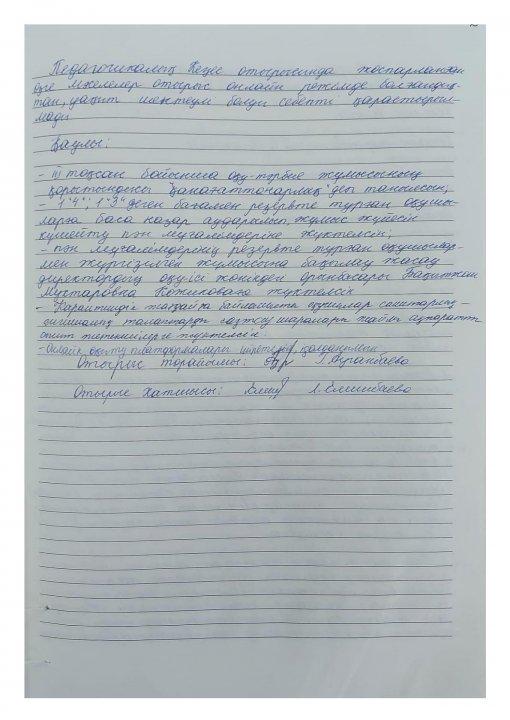 Педагогикалық Кеңес отырысында жоспарланған
өзге мәселелер отырыс онлайн режимде болғандық-
тан, уақыт шектеулі болды себепті қарастырыл-
мады
Қаулы:
- III тоқсан бойынша оқу-тәрбие жұмысының
қорытындысы "қанағаттанарлық" деп танылсын;
- 1 "4"; 1 "3" деген бағамен резервте тұрған оқушы-
ларға баса назар аударылып, жұмыс жүйесін
күшейту пән мұғалімдеріне жүктелсін;
- пән мұғалімдерінің резервте тұрған оқушылар-
мен жүргізілген жұмысына бақылау жасау
директордың оқу ісі жөніндегі орынбасары
Мухтаровна Кожиковаға жүктелсін
- Карантиндік жағдайға байланысты оқушылар санитарлық-
гигиеналық талаптарды сақтау шаралары жайлы ақпаратты
сынып жетекшілерге жүктелсін.
- Онлайн оқыту платформалары қолданылсын
Отырыс төрайымы: Г. Нуранбаева
Отырыс Хатшысы: Л. Елшибаева